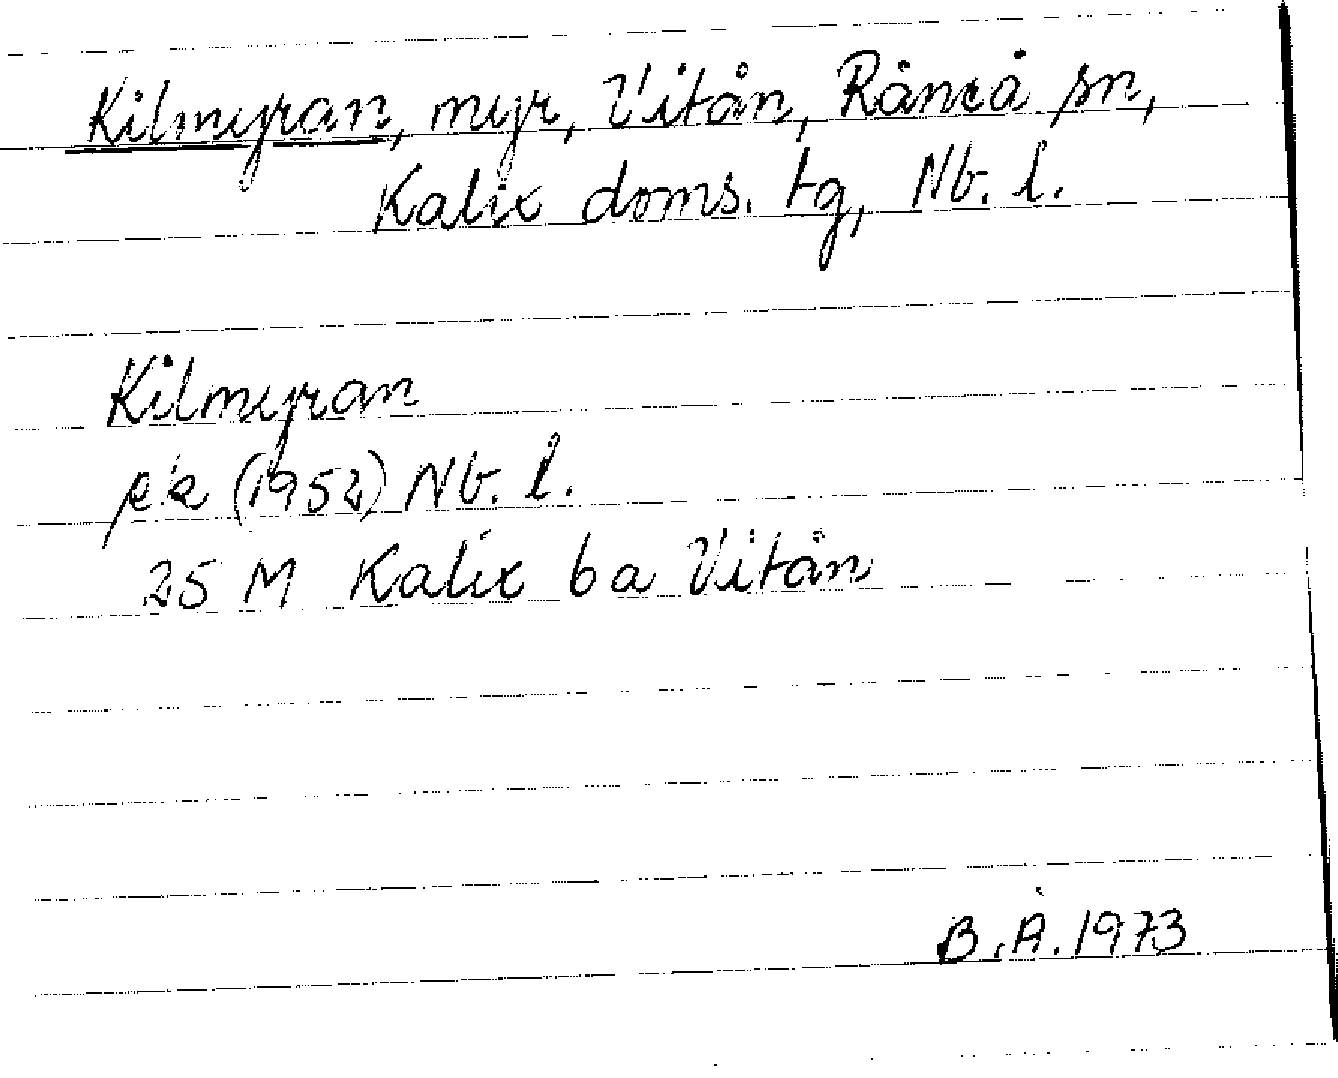 Kilmyran, myr, Vitån, Råneå sn,
Kalix doms. tg, Nb. l.
Kilmyran
ek (1952) Nb. l.
25 M Kalix 6 a Vitån
B.Å. 1973